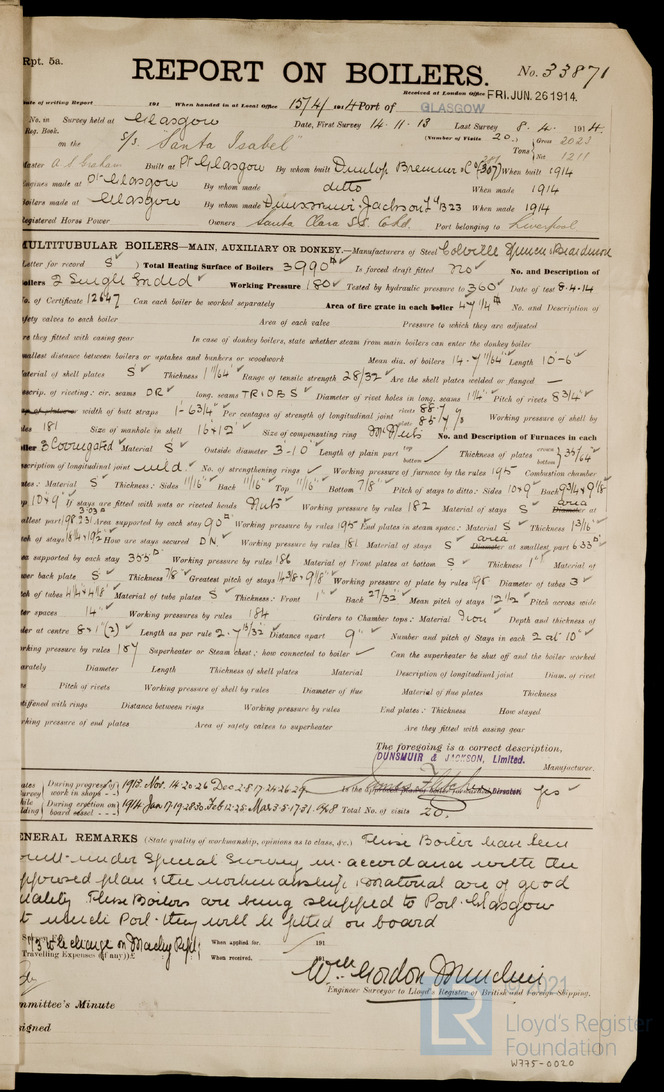 Rpt. 5a.
REPORT ON BOILERS.
No. 33871
Received at London Office FRI. JUN. 26 1914.
Date of writing Report 191 When handed in at Local Office 15/4/ 1914 Port of GLASGOW
No. in Survey held at Glasgow Date, First Survey 14-11-13 Last Survey 8-4- 1914
Reg. Book. (Number of Visits 20.) Gross 2023
on the S/S "Santa Isabel" Tons Net 1211
Master Built at Pt Glasgow By whom built Dunlop Bremner When built 1914
Engines made at Pt Glasgow By whom made ditto When made 1914
Boilers made at Glasgow By whom made Dunsmuir & Jackson Ld 323 When made 1914
Registered Horse Power Owners Santa Clara S.S. Co Ld. Port belonging to Liverpool
MULTITUBULAR BOILERS—MAIN, AUXILIARY OR DONKEY.—Manufacturers of Steel Colville Spencer Beardmore
Letter for record S Total Heating Surface of Boilers 3990 Is forced draft fitted No No. and Description of
Boilers 2 Single Ended Working Pressure 180 Tested by hydraulic pressure to 360 Date of test 8-4-14
No. of Certificate 12647 Can each boiler be worked separately Area of fire grate in each boiler 47 1/4 No. and Description of
safety valves to each boiler Area of each valve Pressure to which they are adjusted
Are they fitted with easing gear In case of donkey boilers, state whether steam from main boilers can enter the donkey boiler
Smallest distance between boilers or uptakes and bunkers or woodwork Mean dia. of boilers 14-7 11/64 Length 10-6
Material of shell plates S Thickness 1 11/64 Range of tensile strength 28/32 Are the shell plates welded or flanged —
Descrip. of riveting: cir. seams DR long. seams TRIDBS Diameter of rivet holes in long. seams 1 1/4 Pitch of rivets 8 3/4
width of butt straps 1-6 3/4 Per centages of strength of longitudinal joint rivets 88.7 plate 85.7 Working pressure of shell by
rules 181 Size of manhole in shell 16x12 Size of compensating ring McNeils No. and Description of Furnaces in each
boiler 3 Corrugated Material S Outside diameter 3-10 Length of plain part top bottom Thickness of plates crown bottom 35/64
Description of longitudinal joint weld. No. of strengthening rings Working pressure of furnace by the rules 195 Combustion chamber
plates: Material S Thickness: Sides 11/16 Back 11/16 Top 11/16 Bottom 7/8 Pitch of stays to ditto: Sides 10x9 Back 9 3/4 x 9 1/8
Top 10x9 If stays are fitted with nuts or riveted heads Nuts Working pressure by rules 182 Material of stays S area Diameter at
smallest part Area supported by each stay 90 Working pressure by rules 195 End plates in steam space: Material S Thickness 1 3/16
Pitch of stays 18 1/4 x 19 1/2 How are stays secured DN. Working pressure by rules 181 Material of stays S area Diameter at smallest part 6.33
Area supported by each stay 355 Working pressure by rules 186 Material of Front plates at bottom S Thickness 1 Material of
Lower back plate S Thickness 7/8 Greatest pitch of stays 14 3/8 x 9 1/8 Working pressure of plate by rules 195 Diameter of tubes 3
Pitch of tubes 4 1/4 x 4 1/8 Material of tube plates S Thickness: Front 1 Back 27/32 Mean pitch of stays 12 1/2 Pitch across wide
water spaces 14 Working pressures by rules 184 Girders to Chamber tops: Material Iron Depth and thickness of
girder at centre 8x1 (2) Length as per rule 2-7 13/32 Distance apart 9 Number and pitch of Stays in each 2 at 10
Working pressure by rules 187 Superheater or Steam chest; how connected to boiler Can the superheater be shut off and the boiler worked
separately Diameter Length Thickness of shell plates Material Description of longitudinal joint Diam. of rivet
Pitch of rivets Working pressure of shell by rules Diameter of flue Material of flue plates Thickness
If stiffened with rings Distance between rings Working pressure by rules End plates: Thickness How stayed
Working pressure of end plates Area of safety valves to superheater Are they fitted with easing gear
The foregoing is a correct description,
DUNSMUIR & JACKSON, Limited.
Manufacturer.
During progress of work in shops 1913. Nov. 14-20-26 Dec 2-8-17-24-26-29 Is the approved plan of boiler forwarded Director. yes
During erection on board vessel 1914 Jan 17-19-28-30 Feb 12-25 Mar 3-5-17-31 Ap 8 Total No. of visits 20.
GENERAL REMARKS (State quality of workmanship, opinions as to class, &c.) These Boilers have been
built under Special Survey in accordance with the
approved plan & the workmanship & material are of good
quality These Boilers are being shipped to Port-Glasgow
at which Port they will be fitted on board
to be charged on Machy Rept. When applied for, 191
Travelling Expenses (if any) £ When received, 191
Wm Gordon
Engineer Surveyor to Lloyd's Register of British and Foreign Shipping.
Committee's Minute
Assigned
© 2021
LR
Lloyd's Register
Foundation
W775-0020